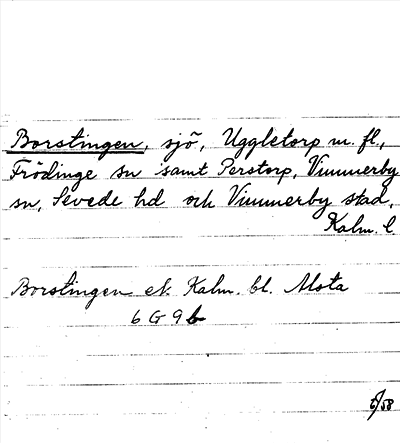 Borstingen, sjö, Uggletorp m. fl.,
Frödinge sn samt Perstorp, Vimmerby
sn, Sevede hd och Vimmerby stad,
Kalm. l
Borstingen ek. Kalm. bl. Alsta
6 G 9 b
/58